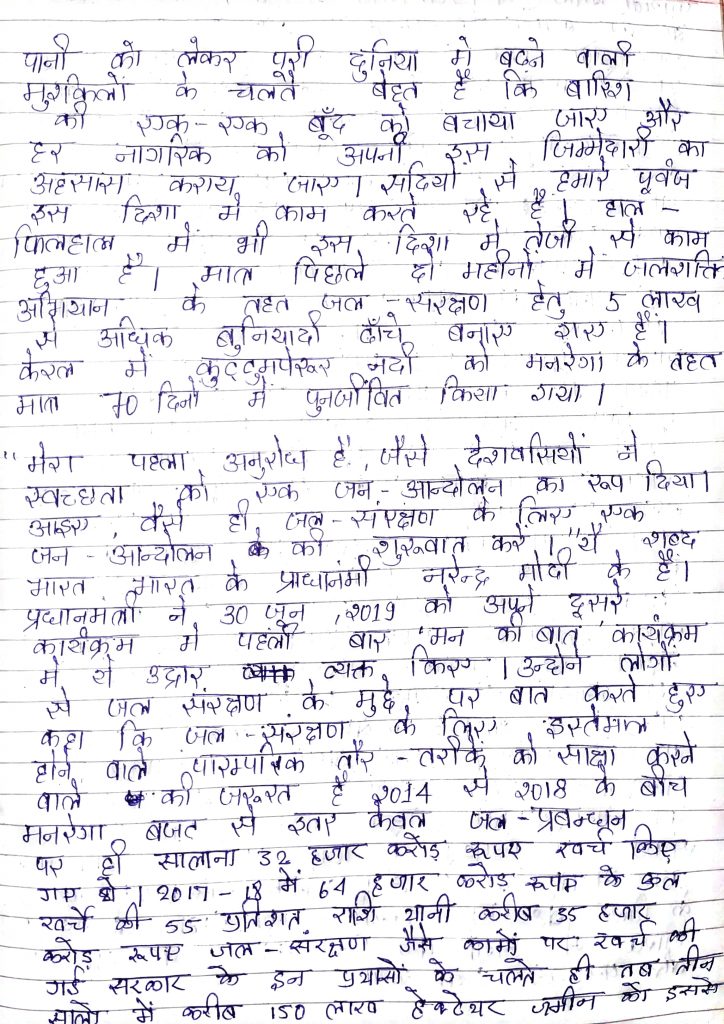 पानी को लेकर पूरी दुनिया मे बढने वाली
मुशकिलों के चलते बेहत है कि बारिश
की एक-एक बूँद को बचाया जाए और
हर नागरिक को अपनी इस जिम्मेदारी का
अहसास कराय जाए। सदियों से हमारे पूर्वज
इस दिशा मे काम करते रहे है। हाल -
फिलहाल में भी इस दिशा मे तेजी से काम
हुआ है। मात पिछले दो महीनों मे जलशक्ति
अभियान के तहत जल-संरक्षण हेतु 5 लाख
से अधिक बुनियादी ढाँचे बनाए गए हैं।
केरल में कुट्टुमपेरूर नदी को मनरेगा के तहत
मात्र 70 दिनों में पुनर्जीवित किया गया।
"मेरा पहला अनुरोध है, जैसे देशवसियों ने
स्वच्छता को एक जन-आन्दोलन का रूप दिया।
आइए, वैसे ही जल-संरक्षण के लिए एक
जन-आन्दोलन की शुरूवात करें।" ये शब्द
भारत भारत के प्राधानमंत्री नरेन्द्र मोदी के हैं।
प्रधानमंत्री ने 30 जून, २०19 को अपने दूसरे
कार्यक्रम मे पहली बार 'मन की बात' कार्यक्रम
मे ये उद्गार व्यक्त किए। उन्होने लोगों
से जल संरक्षण के मुद्दे पर बात करते हुए
कहा कि जल-संरक्षण के लिए इस्तेमाल
होने वाले पारम्परिक तौर-तरीके को साक्षा करने
वाले की जरूरत है २०14 से २०18 के बीच
मनरेगा बजट से इतर केवल जल-प्रबन्धन
पर ही सालाना 32 हजार करोड़ रूपए खर्च किए
गए थे। 2017-18 में 64 हजार करोड़ रूपए के कुल
खर्चे की 55 प्रतिशत राशि यानी करीब 35 हजार
करोड़ रूपए जल-संरक्षण जैसे कामों पर खर्च की
गई सरकार के इन प्रयासों के चलते ही तब तीन
सालों में करीब 150 लाख हेक्टेयर जमीन को इससे